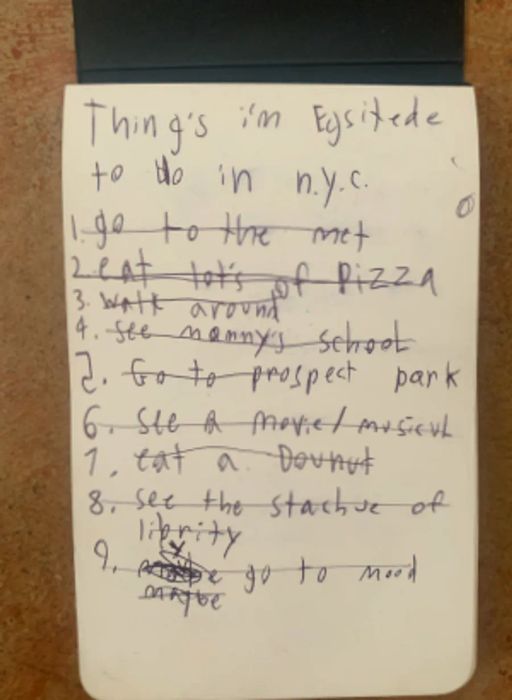 Thing's i'm Eysitede
to do in n.y.c.
1. go to the met
2. eat lot's of Pizza
3. walk around
4. see mommy's school
5. Go to prospect park
6. see a movie/musicul
7. eat a Dounut
8. see the stachue of
librity
9. go to mood
maybe